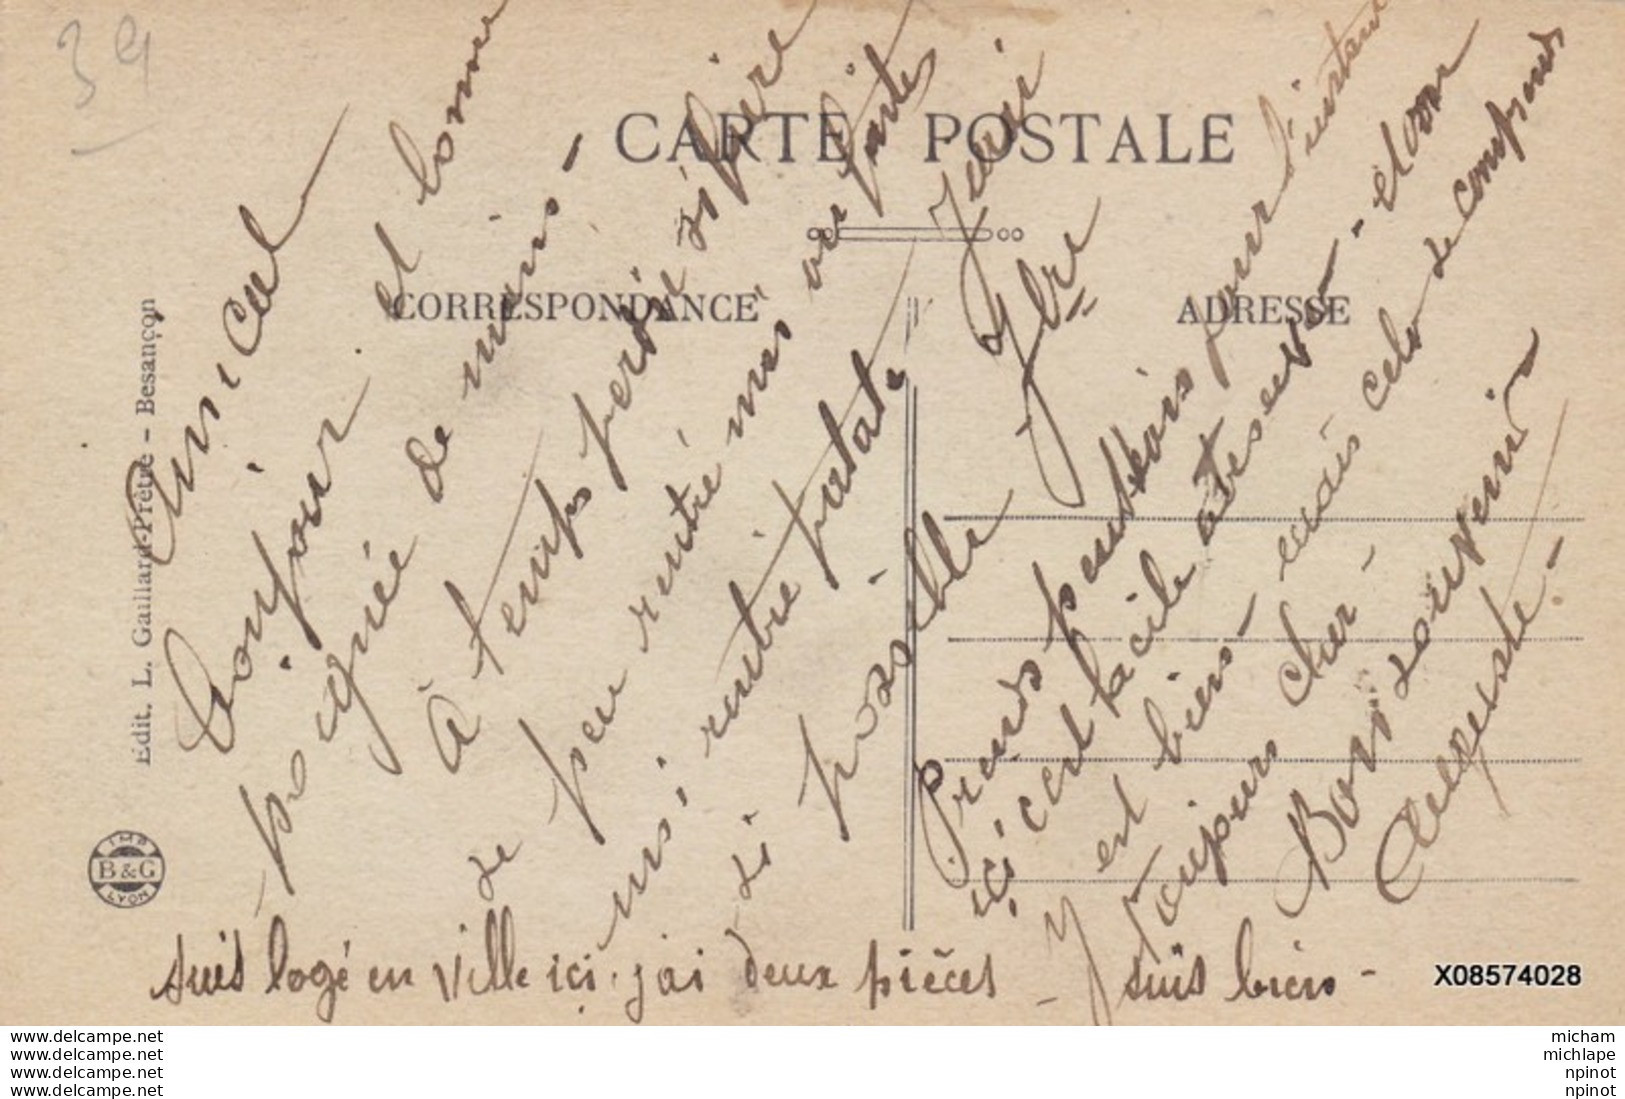 39
CARTE POSTALE
CORRESPONDANCE
ADRESSE
Édit. L. Gaillard-Prêtre - Besançon
IMP
B & G
LYON
Amical
bonjour et bonne
poignée de mains -
à temps perdu si faire
se peu rentré mes ou
mes; rentre patate
si possible
Jeudi
7bre
Prends pour l'instant
ici c'est facile
y est bien - mais cela se comprend
Toujours cher -
Bon souvenir
Auguste -
suis logé en ville ici. j'ai deux pièces - J suis bien -
X08574028
www.delcampe.net
www.delcampe.net
www.delcampe.net
www.delcampe.net
micham
michlape
npinot
npinot